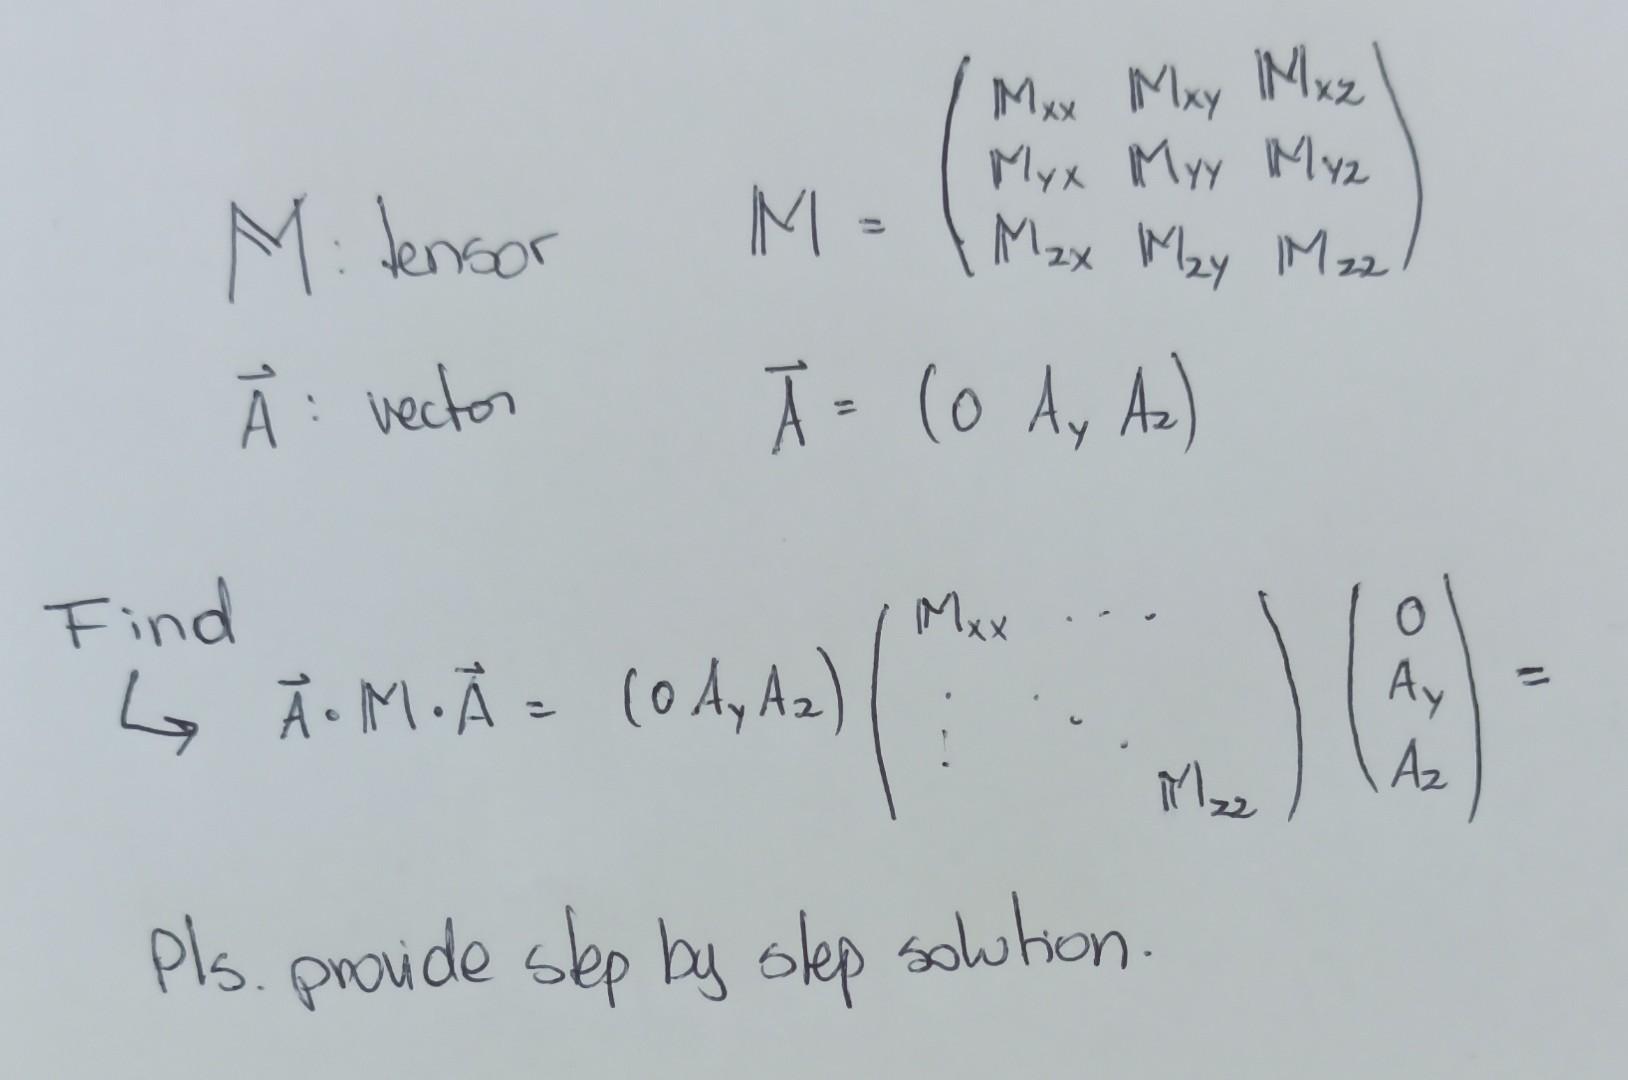 𝕄: tensor 𝕄 = ( 𝕄xx 𝕄xy 𝕄xz
𝕄yx 𝕄yy 𝕄yz
𝕄zx 𝕄zy 𝕄zz )
A⃗ : vector A⃗ = (0 Ay Az)
Find
↳ A⃗ · 𝕄 · A⃗ = (0 Ay Az) ( 𝕄xx ... ⋮ ⋱ 𝕄zz ) ( 0 Ay Az ) =
Pls. provide step by step solution.